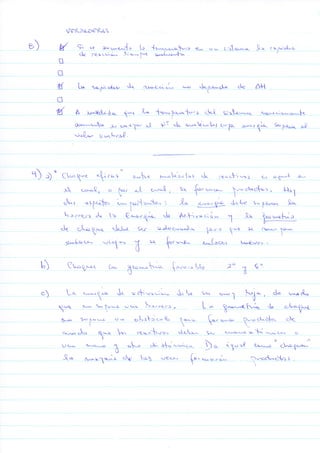 VERDADERAS
3) Si se aumenta la temperatura en un sistema la rapidez
de reacción siempre aumenta
La rapidez de reacción no depende de ΔH
A medida que la temperatura del sistema reaccionante
aumenta es mayor el nº de moléculas cuya energía supera el
valor umbral
4) a) "Choque eficaz" entre moléculas de reactivos es aquel en
el cual, o por el cual, se forman productos. Hay
dos aspectos importantes: la energía debe superar la
barrera de la Energía de Activación y la geometría
de choque debe ser adecuada para que se rompan
enlaces viejos y se formen enlaces nuevos.
b) Choques con geometría favorable 2º y 5º
c) La energía de activación debe ser muy baja, de modo
que no suponga una barrera. La geometría de choque
no supone un obstáculo para formar producto de
modo que los reactivos deben ser
una y otro de Da igual como "choquen"
la mayoría de las veces formarán productos.